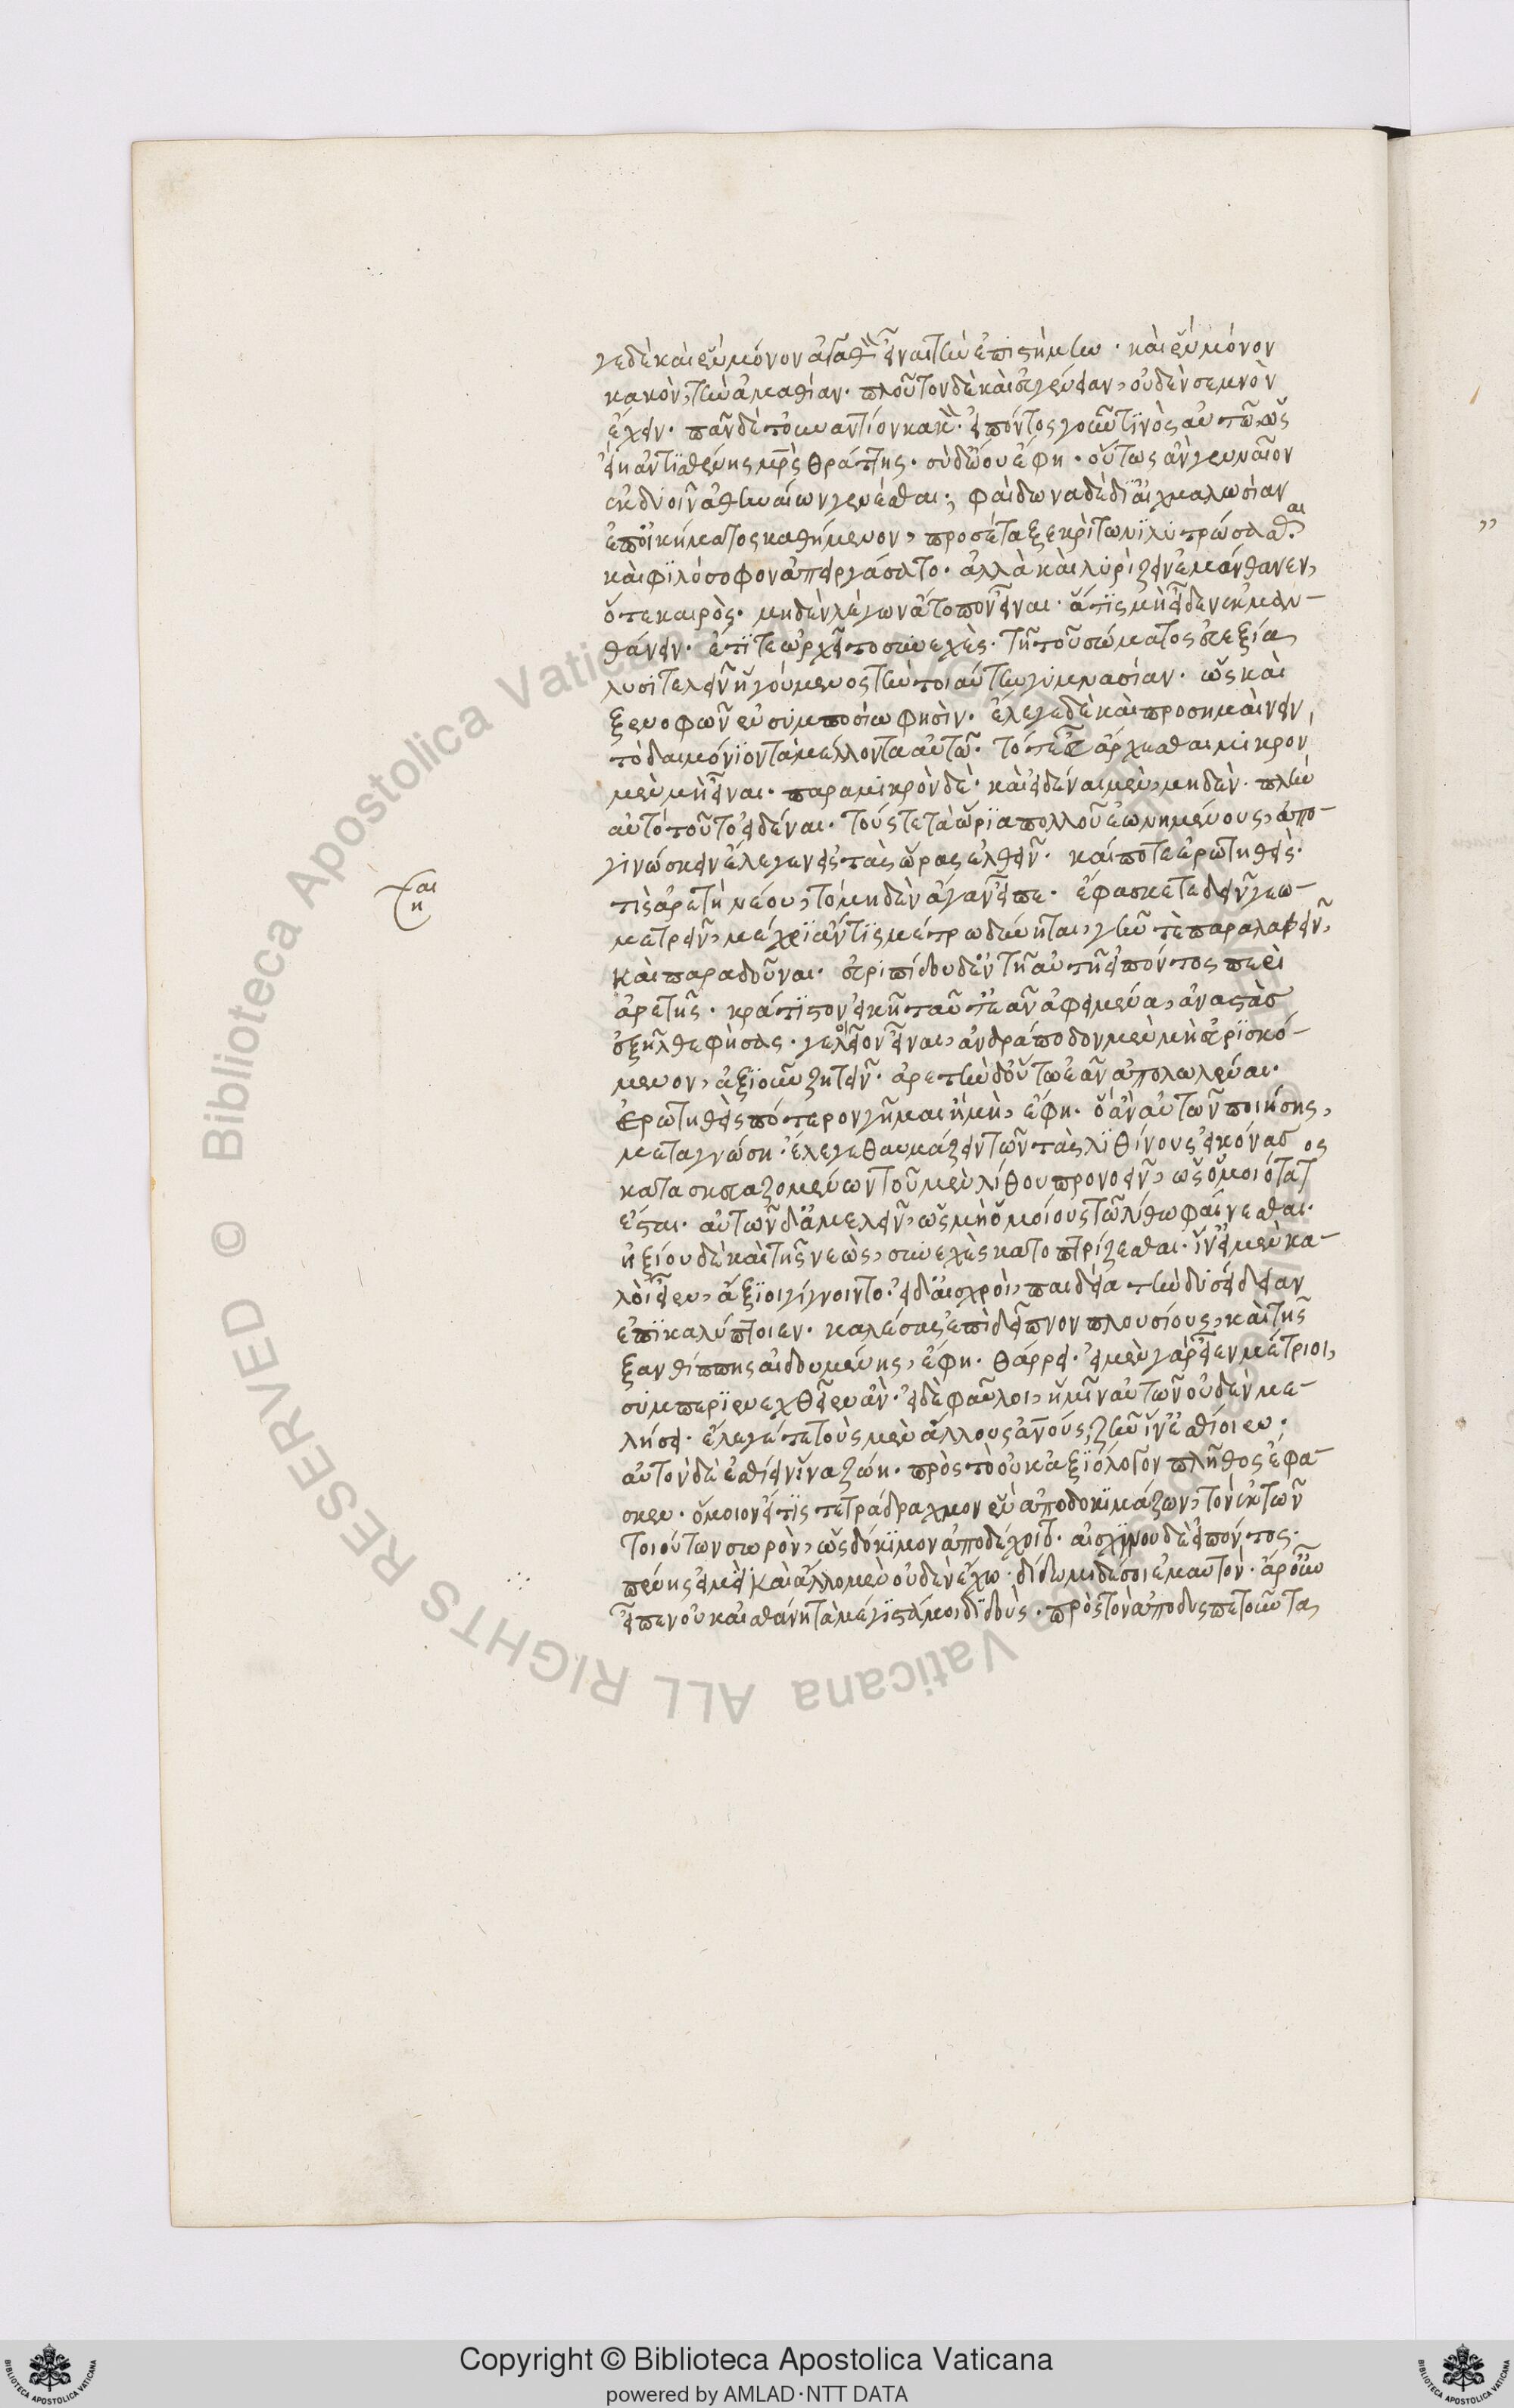 γε δὲ καὶ ἓν μόνον ἀγαθὸν εἶναι τὴν ἐπιστήμην · καὶ ἓν μόνον
κακὸν, τὴν ἀμαθίαν · πλοῦτον δὲ καὶ εὐγένειαν, οὐδὲν σεμνὸν
ἔχειν · πᾶν δὲ τοὐναντίον κακὸν · εἰπόντος γοῦν τινὸς αὐτῶ, ὡς
εἴη ἀντισθένης μητρὸς θράττης · σὺ δ' ὤου ἔφη · οὕτως ἂν γενναῖον
ἐκ δυοῖν ἀθηναίων γενέσθαι; φαίδωνα δὲ δι' αἰχμαλωσίαν
ἐπ' οἰκήματος καθήμενον, προσέταξε κρίτωνι λυτρώσασθαι ·
καὶ φιλόσοφον ἀπειργάσατο · ἀλλὰ καὶ λυρίζειν ἐμάνθανεν,
ὅτε καιρὸς · μηδὲν λέγων ἄτοπον εἶναι · ἅ τις μὴ οἶδεν ἐκμαν-
θάνειν · ἔτι τε ὠρχεῖτο συνεχὲς · τῆ τοῦ σώματος εὐεξία
λυσιτελεῖν ἡγούμενος τὴν τοιαύτην γυμνασίαν · ὡς καὶ
ξενοφῶν ἐν συμποσίω φησὶν · ἔλεγε δὲ καὶ προσημαίνειν
τὸ δαιμόνιον τὰ μέλλοντα αὐτῶ · τό τε εὖ ἄρχεσθαι μικρὸν
μὲν μὴ εἶναι · παρὰ μικρὸν δὲ · καὶ εἰδέναι μὲν, μηδὲν · πλὴν
αὐτὸ τοῦτο εἰδέναι · τούς τε τὰ ὥρια πολλοῦ ἐωνημένους, ἀπο-
γινώσκειν ἔλεγεν εἰς τὰς ὥρας ἐλθεῖν · καί ποτε ἐρωτηθεὶς ·
τίς ἀρετὴ νέου, τὸ μηδὲν ἄγαν εἶπε · ἔφασκέ τε δεῖν γεω-
μετρεῖν, μέχρι ἄν τις μέτρω δύνηται, γῆν τε παραλαβεῖν,
καὶ παραδοῦναι · εὐριπίδου δ' ἐν τῆ αὐγῆ εἰπόντος περὶ
ἀρετῆς · κράτιστον εἰκῆ ταῦτ' ἐᾶν ἀφειμένα, ἀναστὰς
ἐξῆλθε φήσας · γελοῖον εἶναι, ἀνδράποδον μὲν μὴ εὑρισκό-
μενον, ἀξιοῦν ζητεῖν · ἀρετὴν δ' οὕτω ἐᾶν ἀπολωλέναι ·
ἐρωτηθεὶς πότερον γῆμαι ἢ μὴ, ἔφη · ὃ ἂν αὐτῶν ποιήσης,
μεταγνώση · ἔλεγε θαυμάζειν τῶν τὰς λιθίνους εἰκόνας
κατασκευαζομένων τοῦ μὲν λίθου προνοεῖν, ὡς ὁμοιότατος
ἔσται · αὑτῶν δ' ἀμελεῖν, ὡς μὴ ὁμοίους τῶ λίθω φαίνεσθαι ·
ἠξίου δὲ καὶ τῆς νεὼς, συνεχὲς κατοπτρίζεσθαι · ἵν' εἰ μὲν κα-
λοὶ εἶεν, ἄξιοι γίγνοιντο · εἰ δ' αἰσχροὶ, παιδεία τὴν δυσείδειαν
ἐπικαλύπτοιεν · καλέσας ἐπὶ δεῖπνον πλουσίους, καὶ τῆς
ξανθίππης αἰδουμένης, ἔφη · θάρρει · εἰ μὲν γὰρ εἶεν μέτριοι,
συμπεριενεχθεῖεν ἄν · εἰ δὲ φαῦλοι, ἡμῖν αὐτῶν οὐδὲν με-
λήσει · ἔλεγέ τε τοὺς μὲν ἄλλους ἀνους, ζῆν ἵν' ἐσθίοιεν ·
αὐτὸν δὲ ἐσθίειν ἵνα ζώη · πρὸς τὸ οὐκ ἀξιόλογον πλῆθος ἔφα-
σκεν · ὅμοιον εἴ τις τετράδραχμον ἓν ἀποδοκιμάζων, τὸν ἐκ τῶν
τοιούτων σωρὸν, ὡς δόκιμον ἀποδέχοιτο · αἰσχίνου δὲ εἰπόντος ·
πένης εἰμὶ καὶ ἄλλο μὲν οὐδὲν ἔχω · δίδωμι δέ σοι ἐμαυτὸν · ἆρ' οὖν
εἶπεν οὐκ αἰσθάνη τὰ μέγιστά μοι διδοὺς · πρὸς τὸν ἀποδυσπετοῦντα
χαι
η
Copyright © Biblioteca Apostolica Vaticana
powered by AMLAD·NTT DATA
© Biblioteca Apostolica Vaticana ALL RIGHTS RESERVED
BIBLIOTECA APOSTOLICA VATICANA
BIBLIOTECA APOSTOLICA VATICANA